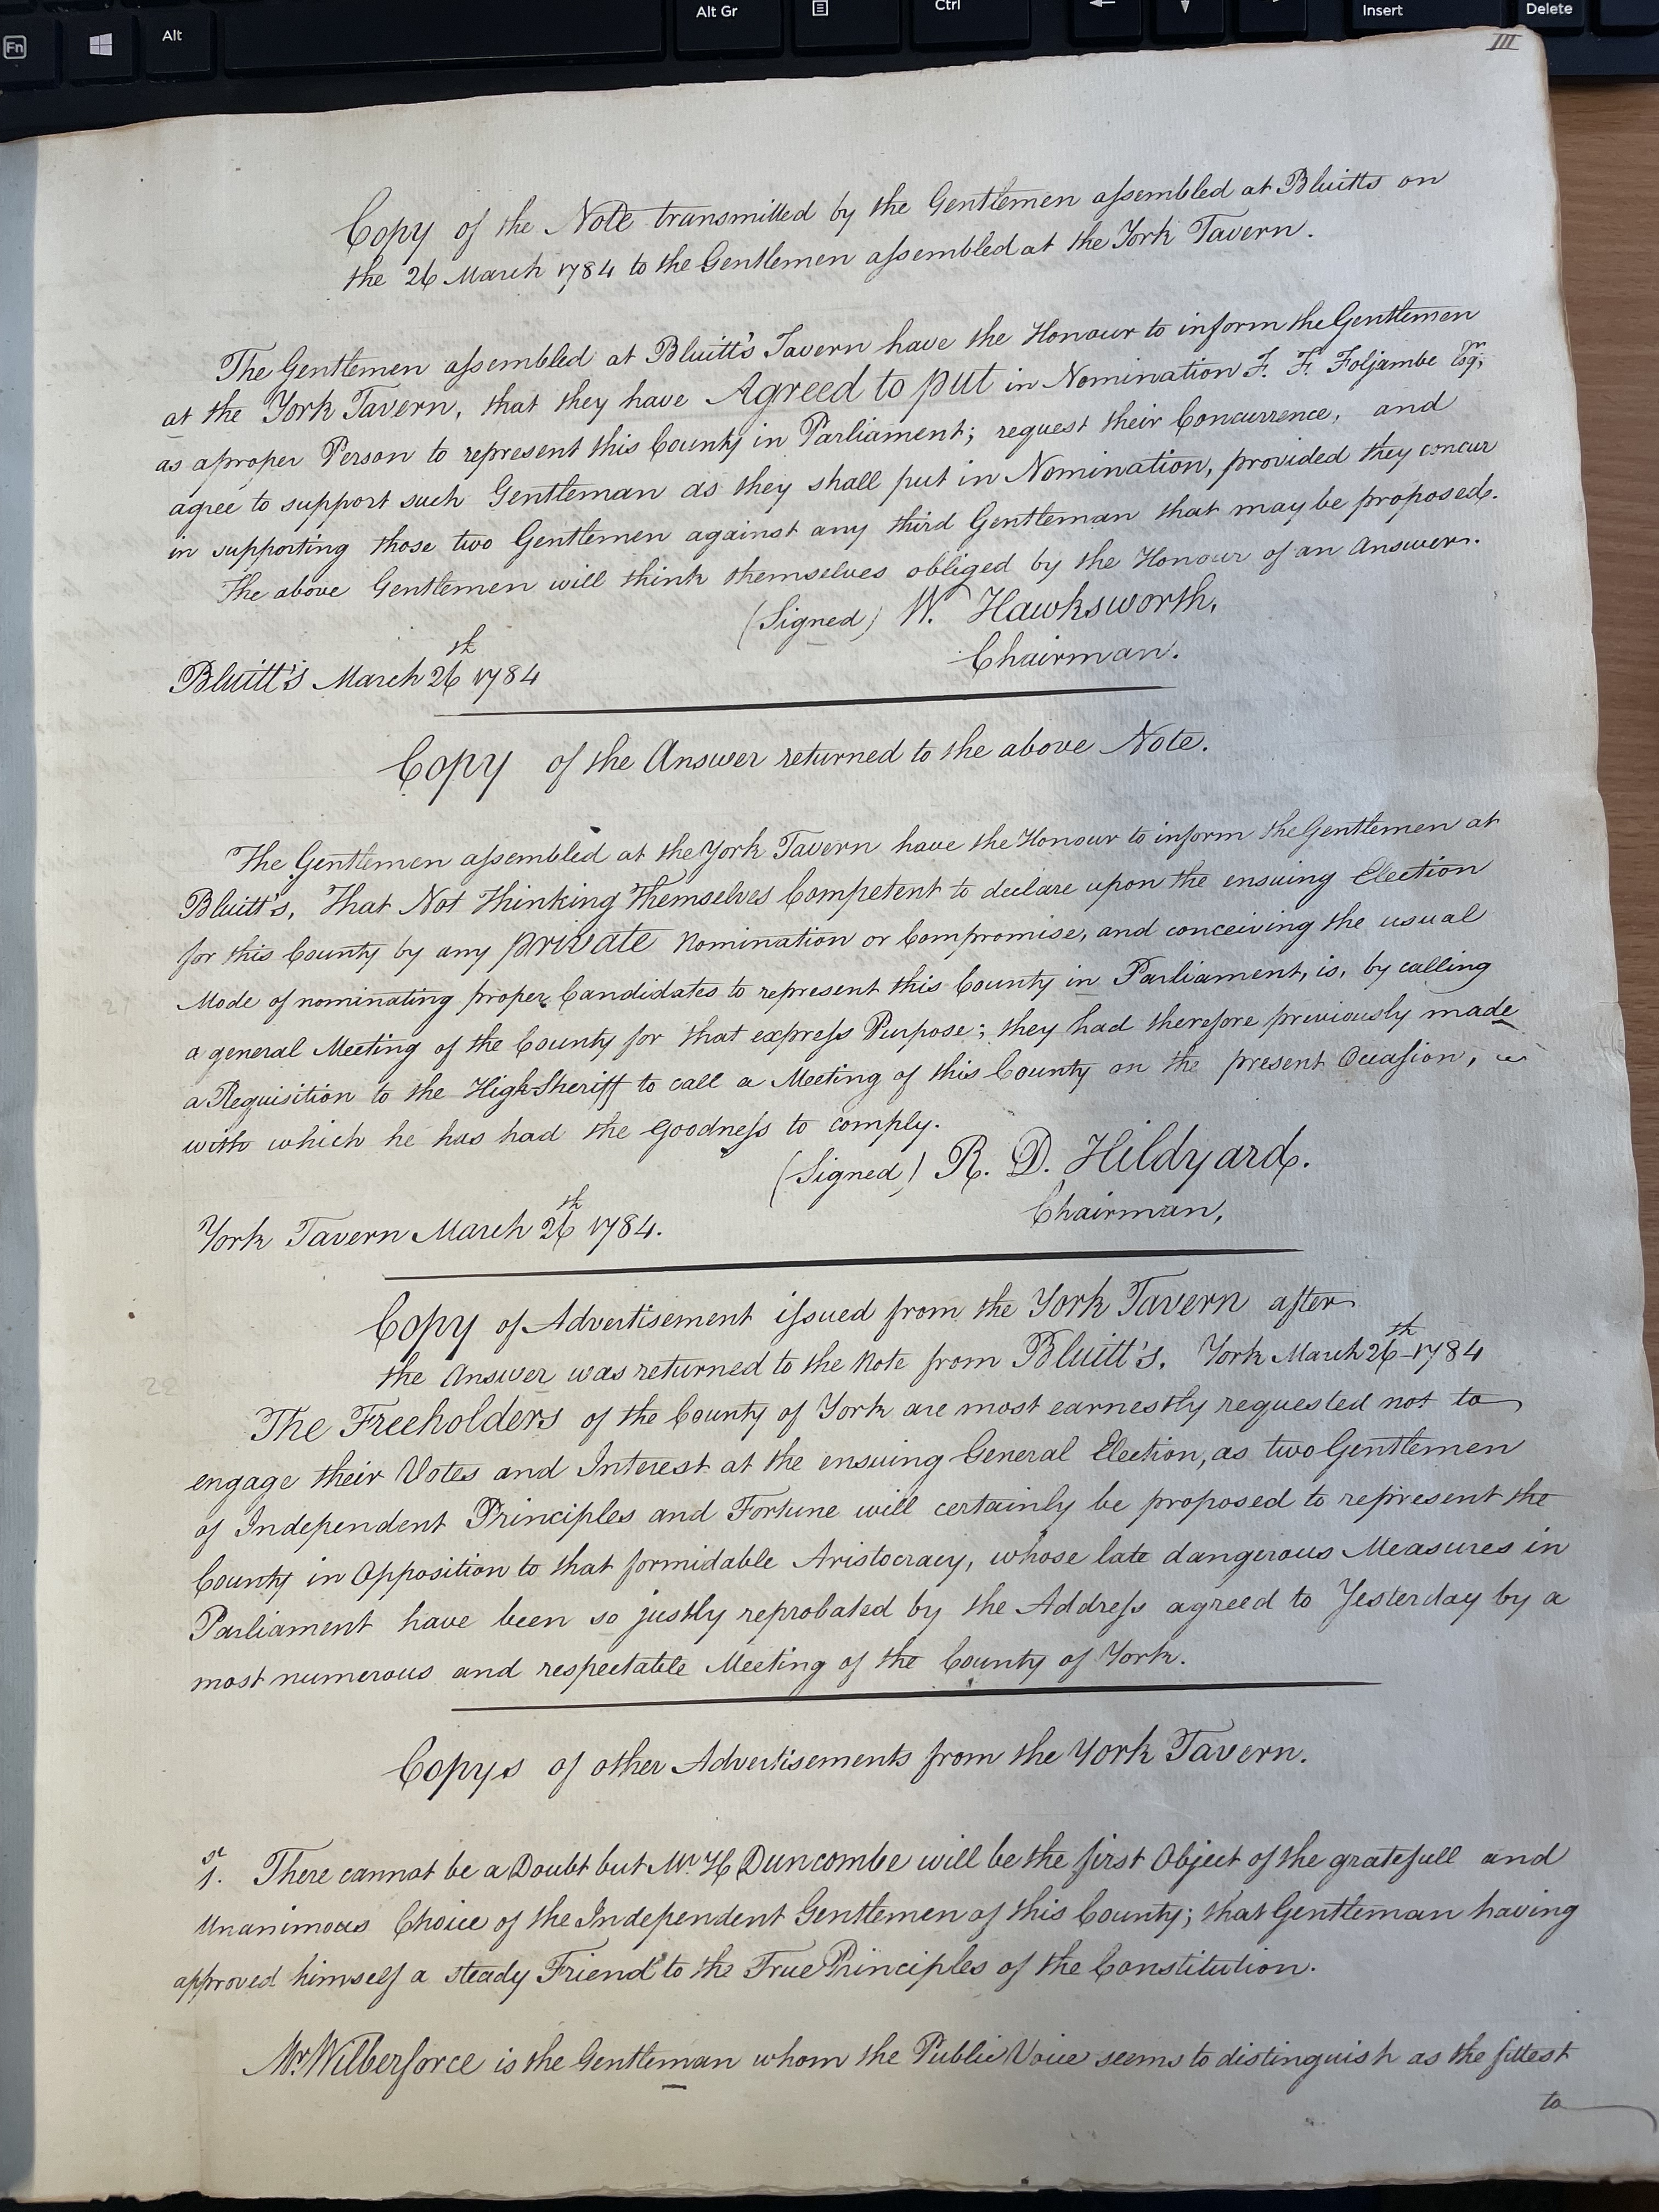 Alt Gr
Ctrl
Insert
Delete
Fn
Alt
III
Copy of the Note transmitted by the Gentlemen aſsembled at Bluitts on
the 26 March 1784 to the Gentlemen aſsembled at the York Tavern.
The Gentlemen aſsembled at Bluitt's Tavern have the Honour to inform the Gentlemen
at the York Tavern, that they have Agreed to put in Nomination F. F. Foljambe Esqr,
as a proper Person to represent this County in Parliament; request their Concurrence, and
agree to support such Gentleman as they shall put in Nomination, provided they concur
in supporting those two Gentlemen against any third Gentleman that may be proposed.
The above Gentlemen will think themselves obliged by the Honour of an Answer.
(Signed) W. Hawksworth,
Chairman.
Bluitt's March 26th 1784
Copy of the Answer returned to the above Note.
The Gentlemen aſsembled at the York Tavern have the Honour to inform the Gentlemen at
Bluitt's, That Not Thinking Themselves Competent to declare upon the ensuing Election
for this County by any private Nomination or Compromise, and conceiving the usual
Mode of nominating proper Candidates to represent this County in Parliament, is, by calling
a general Meeting of the County for that expreſs Purpose; they had therefore previously made
a Requisition to the High Sheriff to call a Meeting of this County on the present Occaſion,
with which he has had the Goodneſs to comply.
(Signed) R. D. Hildyard.
Chairman,
York Tavern March 26th 1784.
Copy of Advertisement iſsued from the York Tavern after
the Answer was returned to the Note from Bluitt's. York March 26th 1784
The Freeholders of the County of York are most earnestly requested not to
engage their Votes and Interest at the ensuing General Election, as two Gentlemen
of Independent Principles and Fortune will certainly be proposed to represent the
County in Opposition to that formidable Aristocracy, whose late dangerous Measures in
Parliament have been so justly reprobated by the Addreſs agreed to Yesterday by a
most numerous and respectable Meeting of the County of York.
Copys of other Advertisements from the York Tavern.
1st. There cannot be a Doubt but Mr. H Duncombe will be the first Object of the gratefull and
Unanimous Choice of the Independent Gentlemen of this County; that Gentleman having
approved himself a steady Friend to the True Principles of the Constitution.
Mr. Wilberforce is the Gentleman whom the Public Voice seems to distinguish as the fittest
to